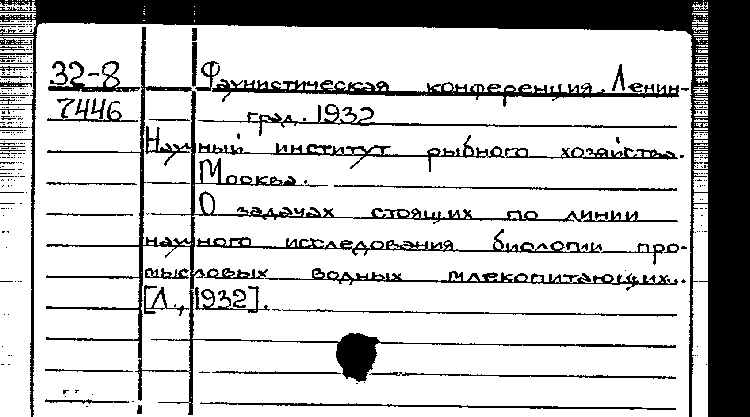 32-8 Фаунистическая конференция. Ленин-
7446 град. 1932
Научный институт рыбного хозяйства.
Москва.
О задачах стоящих по линии
научного исследования биологии про-
мысловых водных млекопитающих.
[Л., 1932].